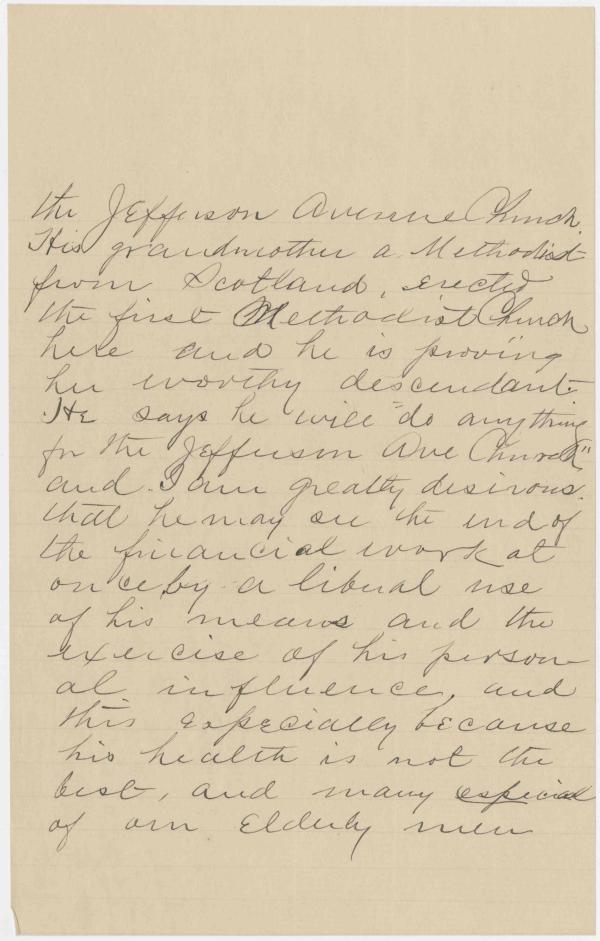 the Jefferson Avenue Church.
His grandmother a Methodist
from Scotland, erected
the first Methodist Church
here and he is proving
her worthy descendant.
He says he will "do anything
for the Jefferson Ave Church"
and I am greatly desirous
that he may see the end of
the financial work at
once by a liberal use
of his means and the
exercise of his person-
al influence, and
this especially because
his health is not the
best, and many especial
of our Elderly men